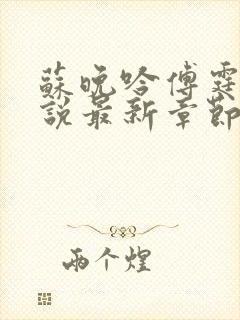 蘇晚吟傅霆
說最新章節
兩个煌